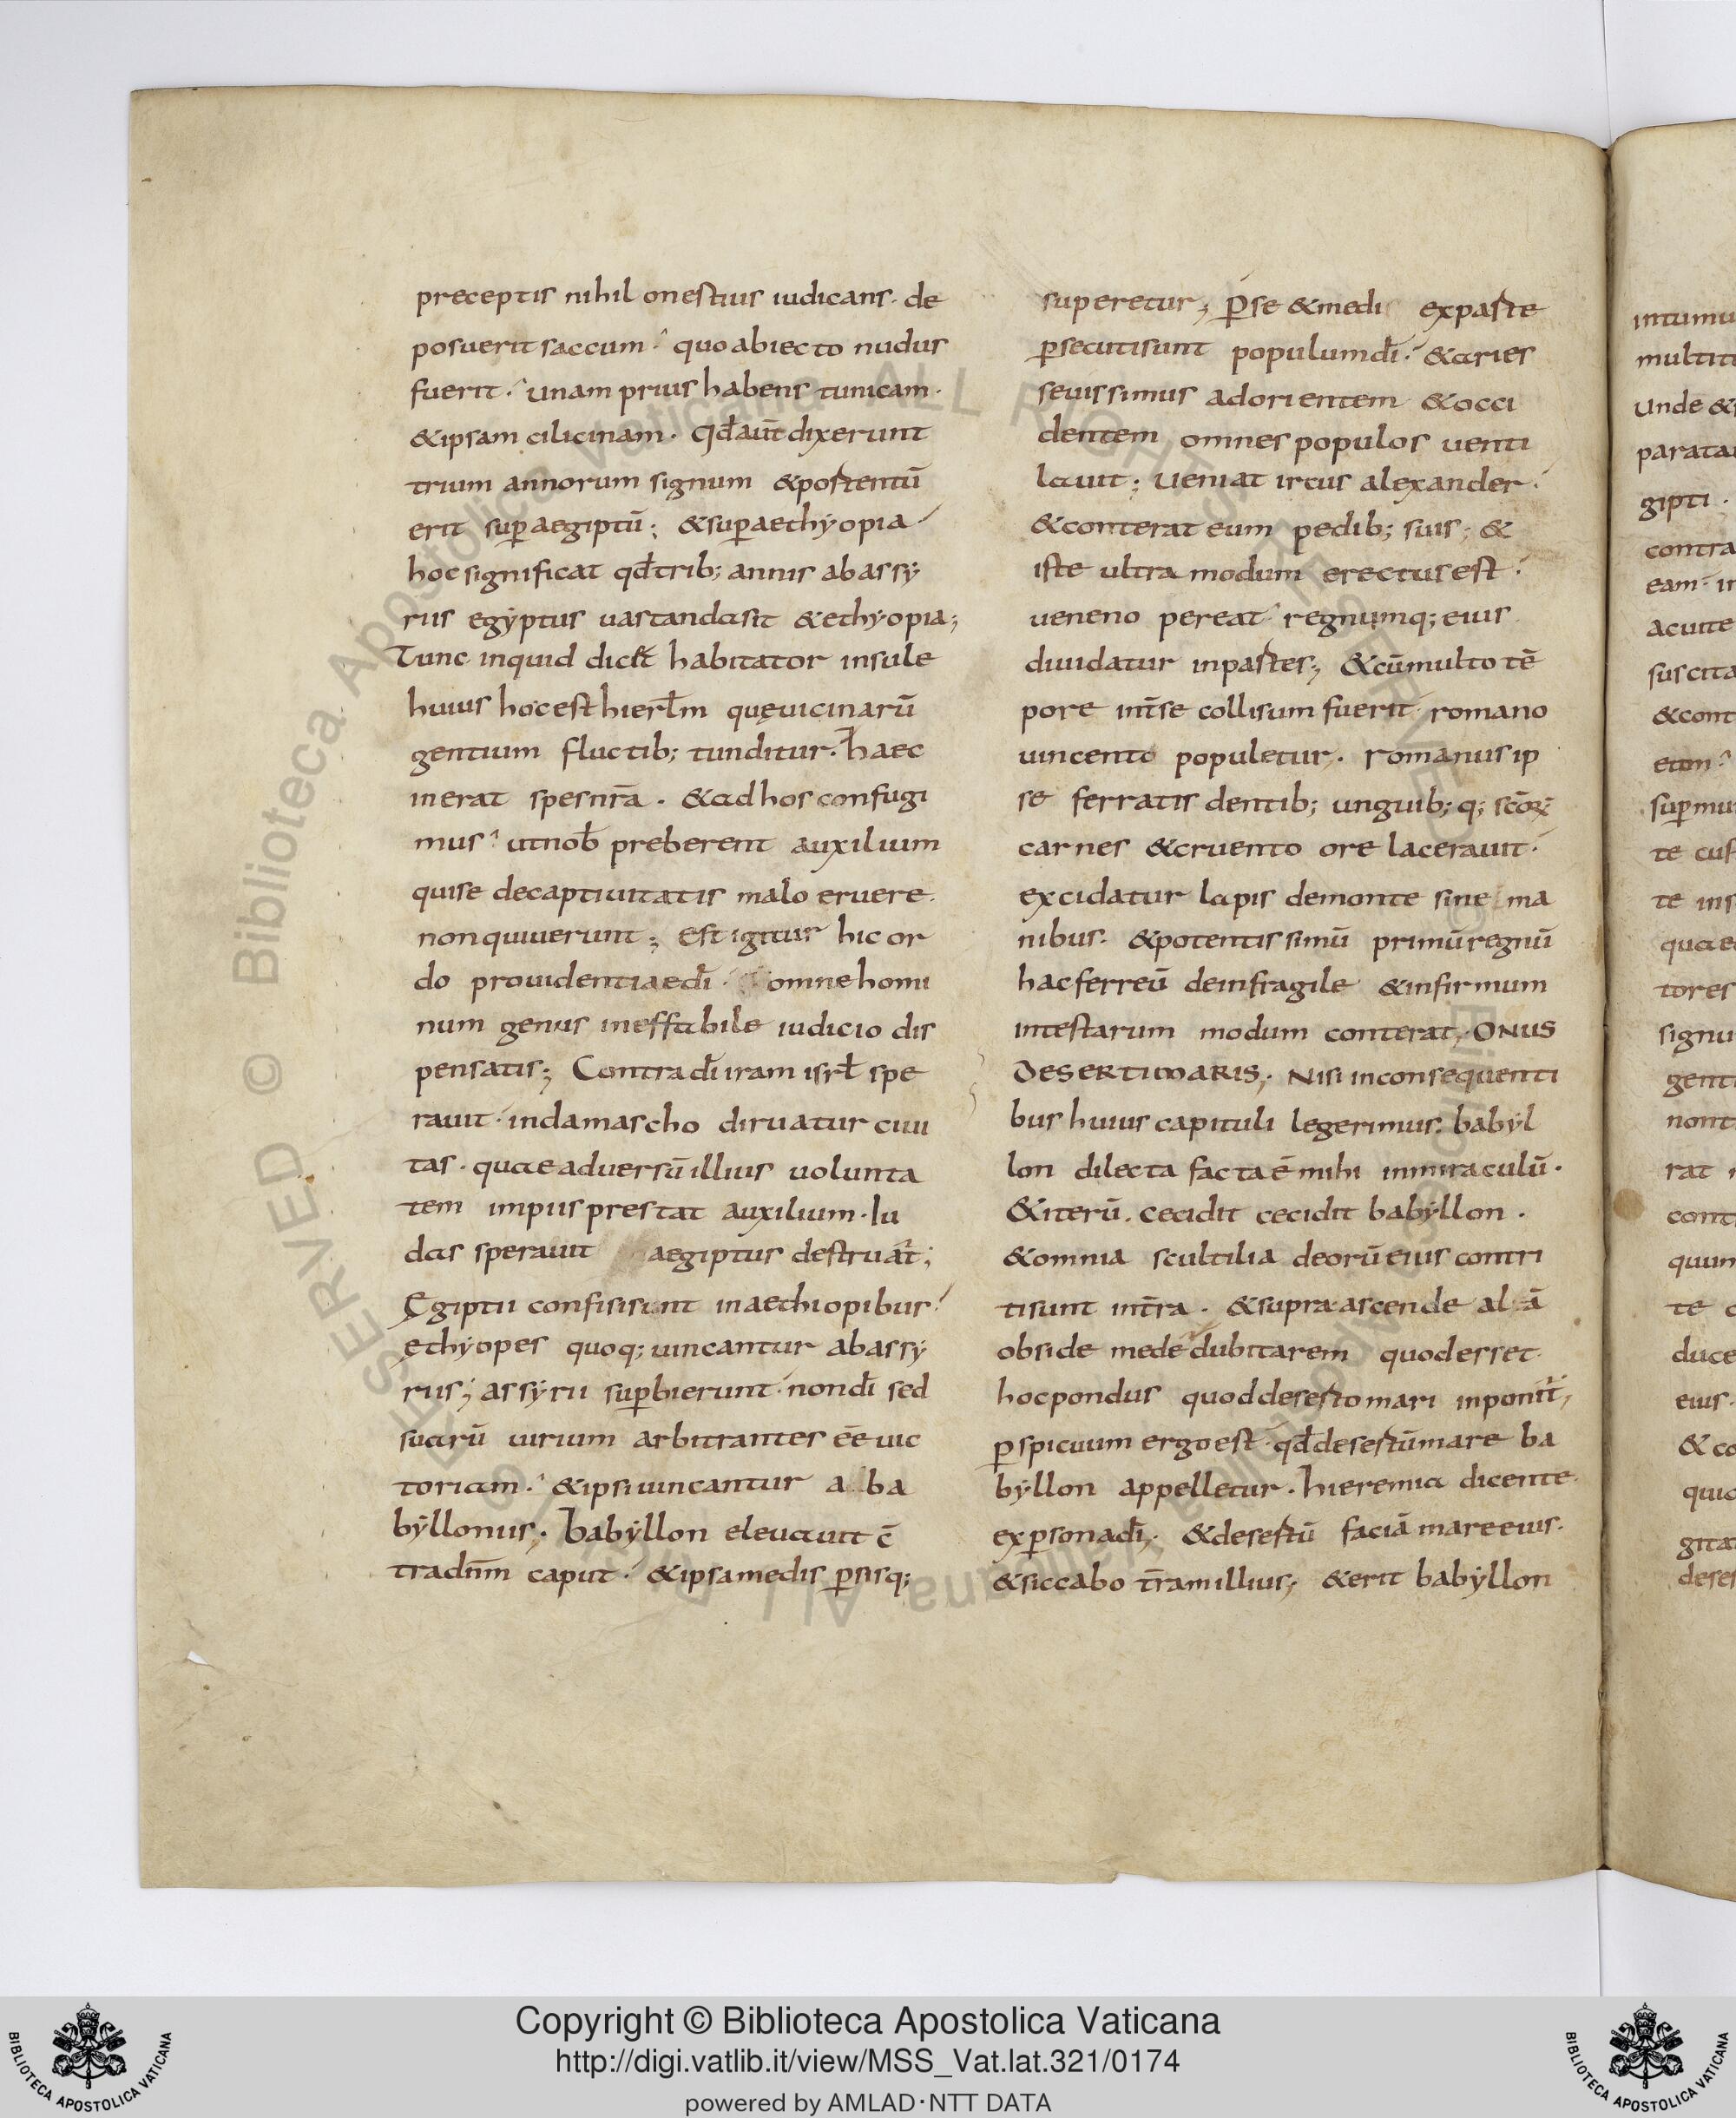 preceptis nihil onestius iudicans. de
posuerit saccum. quo abiecto nudus
fuerit. unam prius habens tunicam.
& ipsam cilicinam. Qđ aut̄ dixerunt
trium annorum signum & portentū
erit suꝑ aegiptū; & suꝑ aethẏopia
hoc significat qđ trib; annis ab assẏ
riis egẏptus uastanda sit & ethẏopia;
Tunc inquid dicet habitator insule
huius hoc est hierl̄m quę uicinarū
gentium fluctib; tunditur. haec
inerat spes nr̄a. & ad hos confugi
mus utnob̄ preberent auxilium
qui se de captiuitatis malo eruere.
non quiuerunt; Est igitur hic or
do prouidentiae dī. omne homi
num genus ineffabile iudicio dis
pensatis; Contra dī iram isrł spe
rauit. in damascho diruatur ciui
tas. quae aduersū illius uolunta
tem impiis prestat auxilium. Iu
das sperauit aegiptus destruat̄;
Ęgiptii confisi sunt in aethiopibus
ęthẏopes quoq; uincantur ab assẏ
riis; assẏrii suꝑbierunt. non dī sed
suarū uirium arbitrantes ēē uic
toriam. & ipsi uincantur a ba
bẏlloniis. babẏllon eleuauit c̄
tra dn̄m caput. & ipsa medis ꝑsisq;
superetur; ꝑse & medi ex parte
ꝑsecuti sunt populum dī. & aries
seuissimus ad orientem & occi
dentem omnes populos uenti
lauit; Ueniat ircus alexander.
& conterat eum pedib; suis; &
iste ultra modum erectus est.
ueneno pereat regnumq; eius
diuidatur in partes; & cū multo tē
pore int̄ se collisum fuerit romano
uincente populetur. romanus ip
se ferratis dentib; unguib; q; sc̄oꝝ
carnes & cruento ore lacerauit.
excidatur lapis de monte sine ma
nibus. & potentissimū primū regnū
hac ferreū dein fragile & infirmum
in testarum modum conterat; ONUS
DESERTI MARIS; Nisi in consequenti
bus huius capituli legerimus. babẏl
lon dilecta facta ē mihi in miraculū.
& iterū. cecidit cecidit babẏllon.
& omnia scultilia deorū eius contri
ti sunt in t̄ra. & supra ascende al ā
obside mede dubitarem quod esset
hoc pondus quod deserto mari inponit̄;
ꝑspicuum ergo est. qđ desertū mare ba
bẏllon appelletur. hieremia dicente
ex ꝑsona dī; & desertū faciā mare eius.
& siccabo t̄ram illius; & erit babẏllon
intumu
multit
Unde &
parata
gipti.
contra
eam. i
acuite
suscita
& cont
eam
suꝑ mu
te cus
te ins
quae
tores
signu
gent
non t
rat
cont
quun
te
duce
eius.
& co
qui
gita
deser
Copyright © Biblioteca Apostolica Vaticana
http://digi.vatlib.it/view/MSS_Vat.lat.321/0174
powered by AMLAD·NTT DATA
BIBLIOTECA APOSTOLICA VATICANA
BIBLIOTECA APOSTOLICA VATICANA